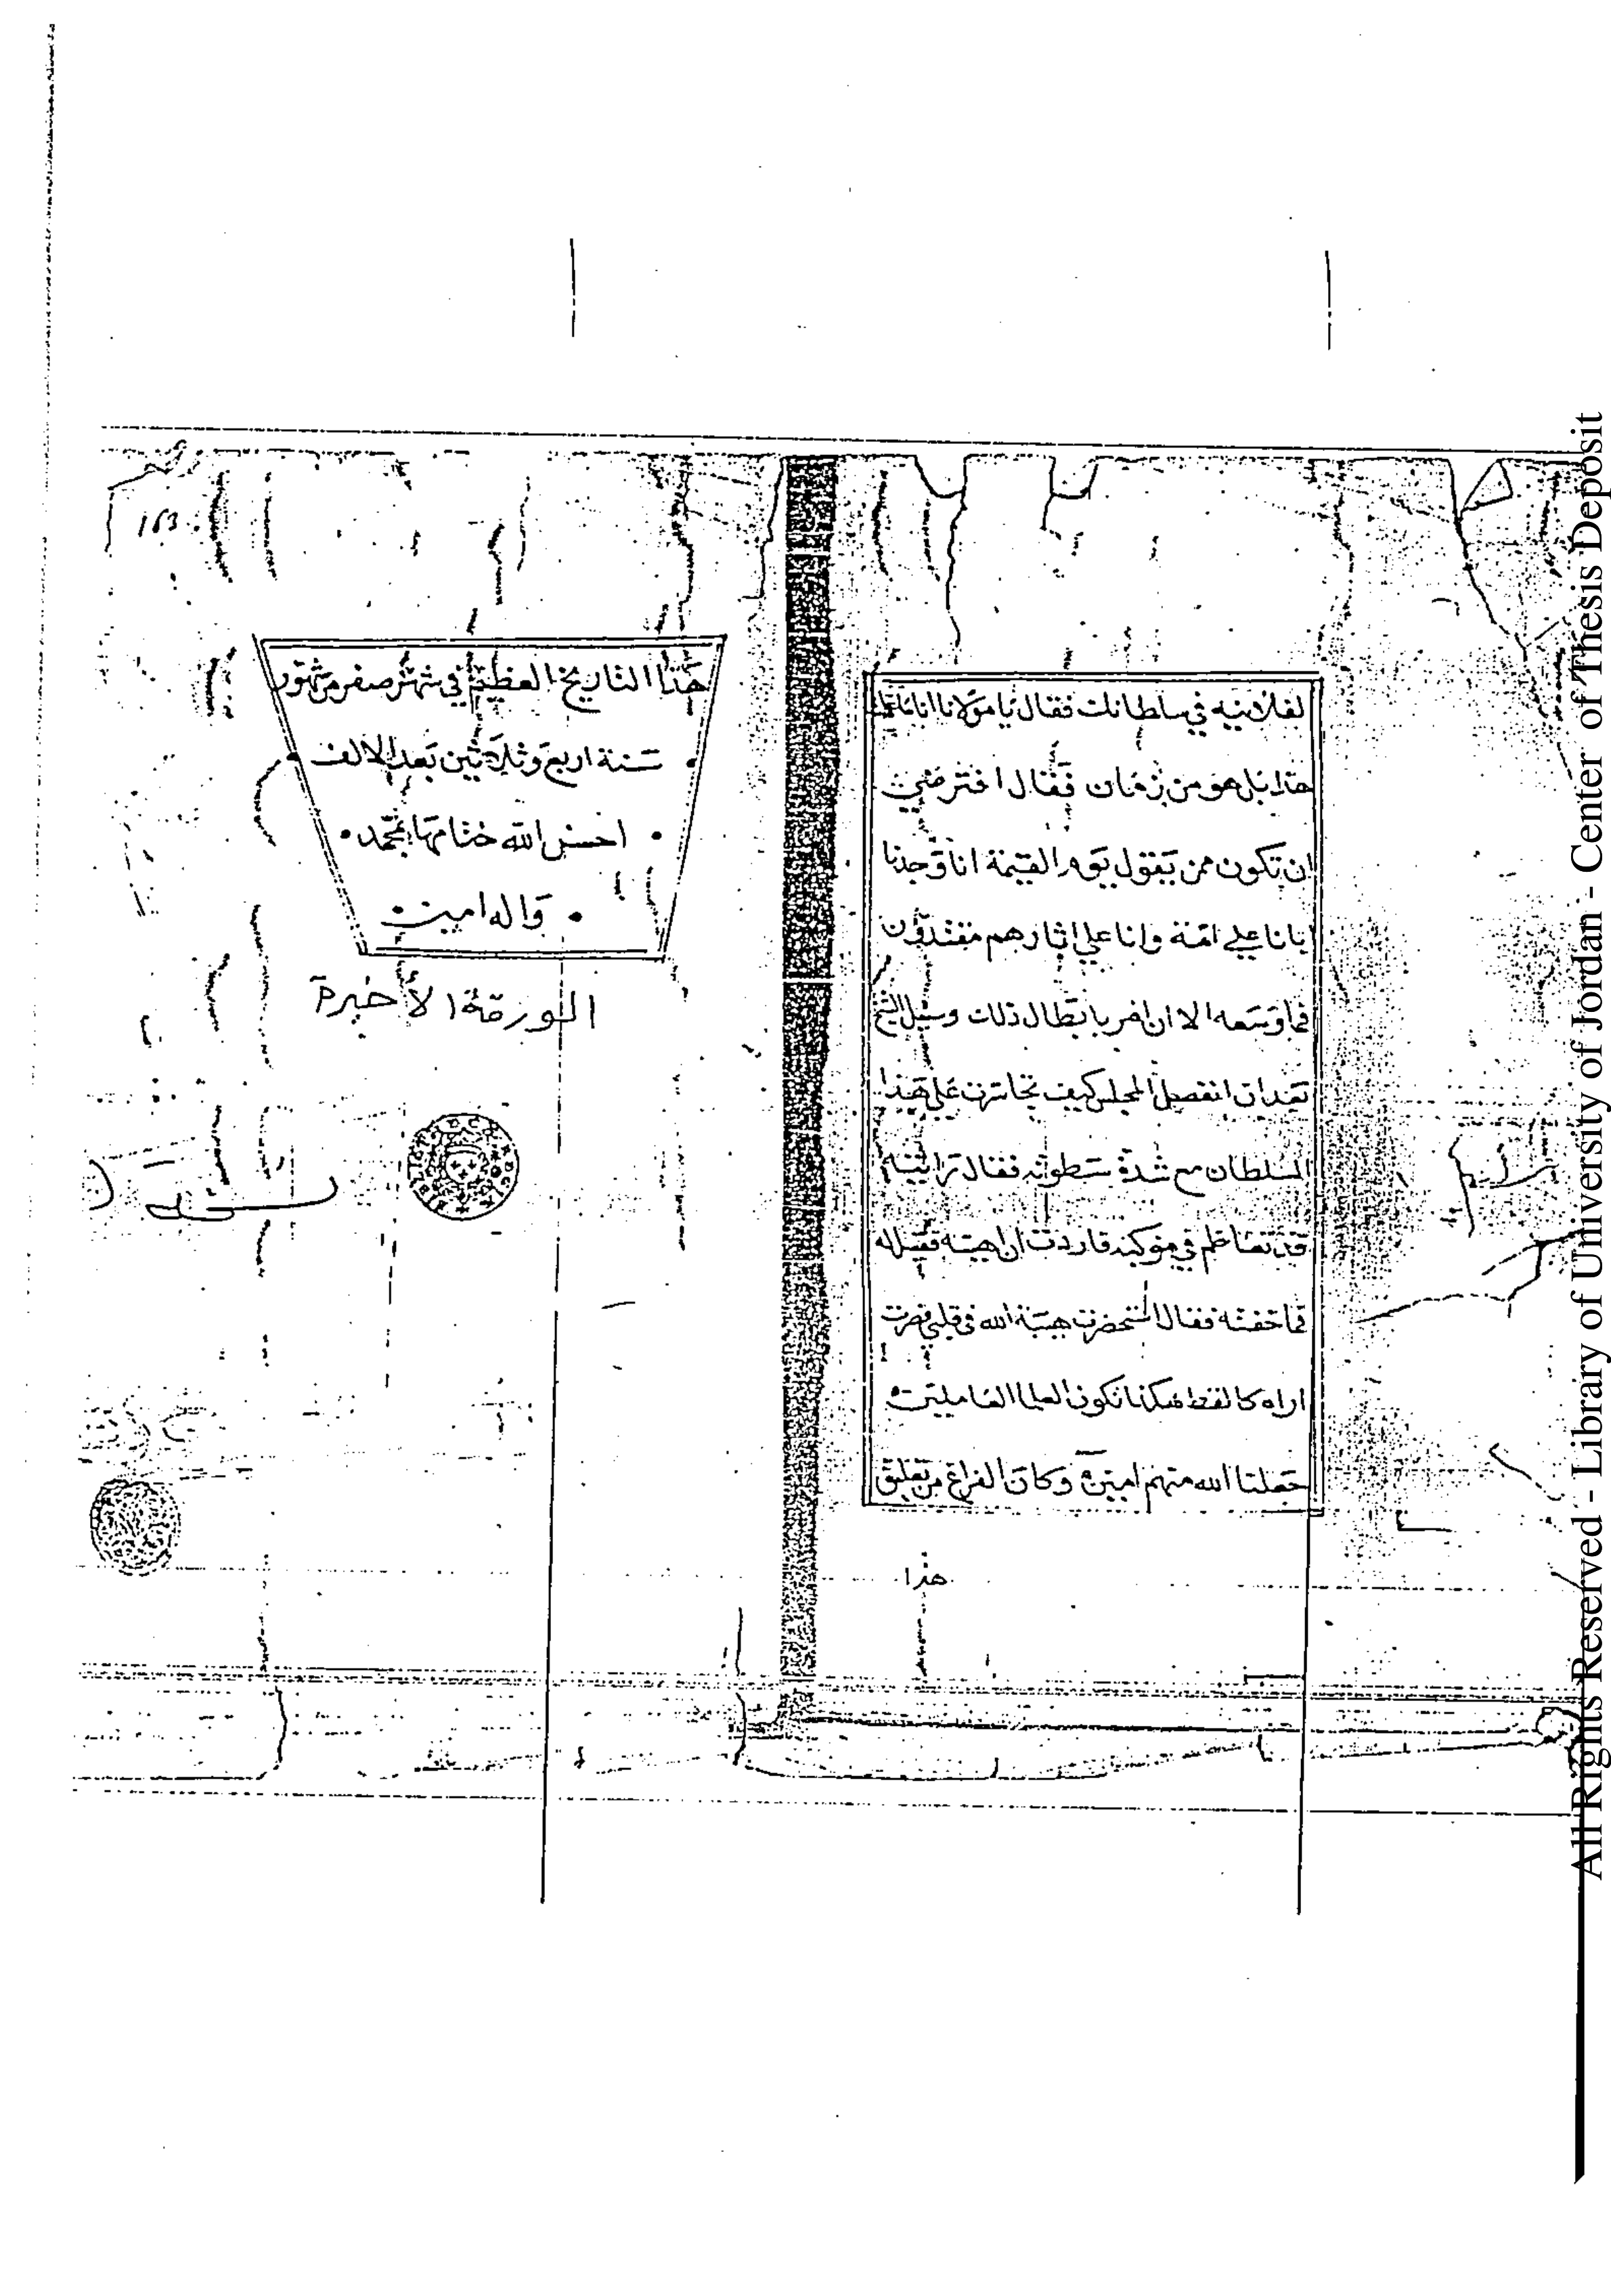 لفلانيه في سلطانك فقال يا مولانا انا ما عملت
هذا بل هو من زمان فقال افترضي
ان تكون ممن يقول يوم القيمة انا وجدنا
ابانا علي امة وانا علي اثارهم مقتدون
فما وسعه الا ان امر بابطال ذلك وسيل الشيخ
بعد ان انفصل المجلس كيف تجاسرت علي هذا
السلطان مع شدة سطوته فقال رايته
قد تعاظم في موكبه فاردت ان اهينه فقيل له
فما خفته فقال استحضرت هيبة الله في قلبي فصرت
اراه كالقط هكذا تكون العلما العاملين
جعلنا الله منهم امين وكان الفراغ من تعليق
هذا
163
هذا التاريخ العظيم في شهر صفر من شهور
سنة اربع وثلاثين بعد الالف
احسن الله ختامها بمحمد
واله امين
الورقة الأخيرة
All Rights Reserved - Library of University of Jordan - Center of Thesis Deposit